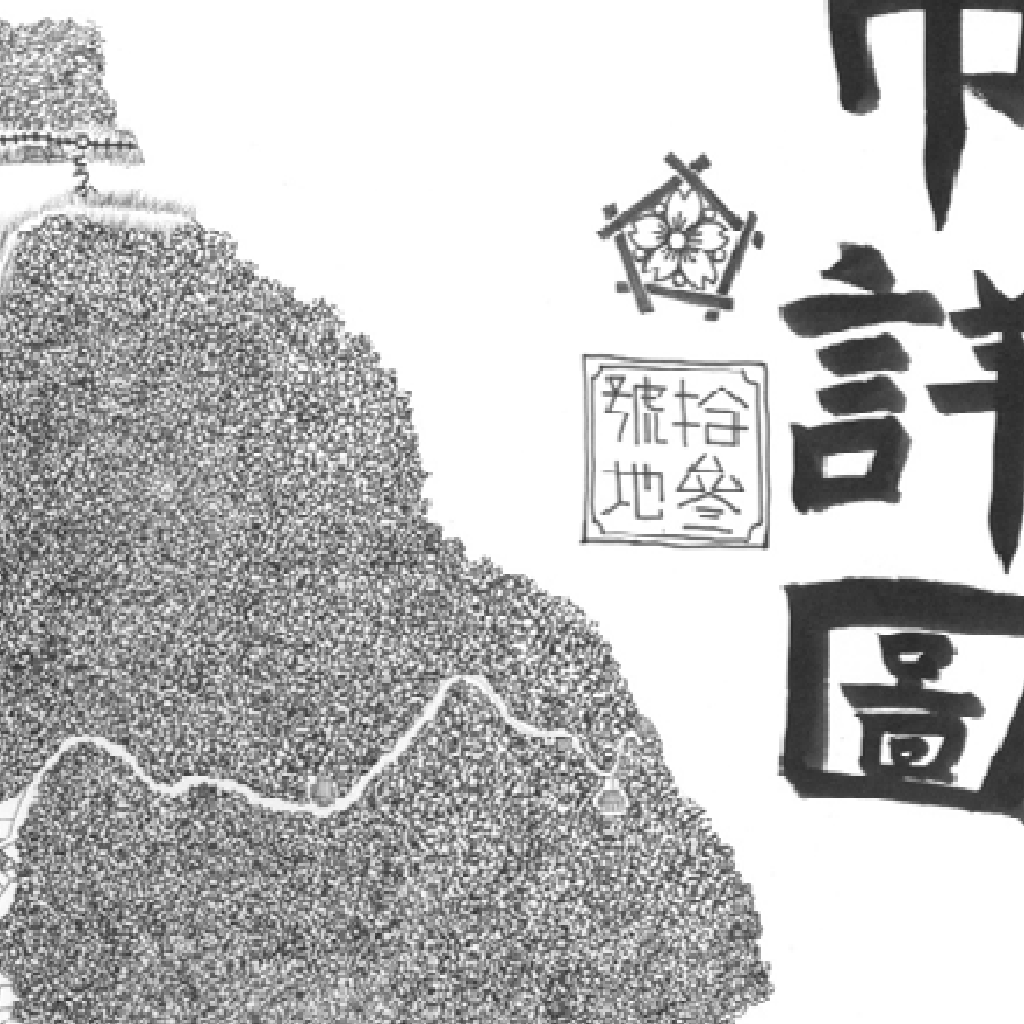 市詳圖
拾參
號地